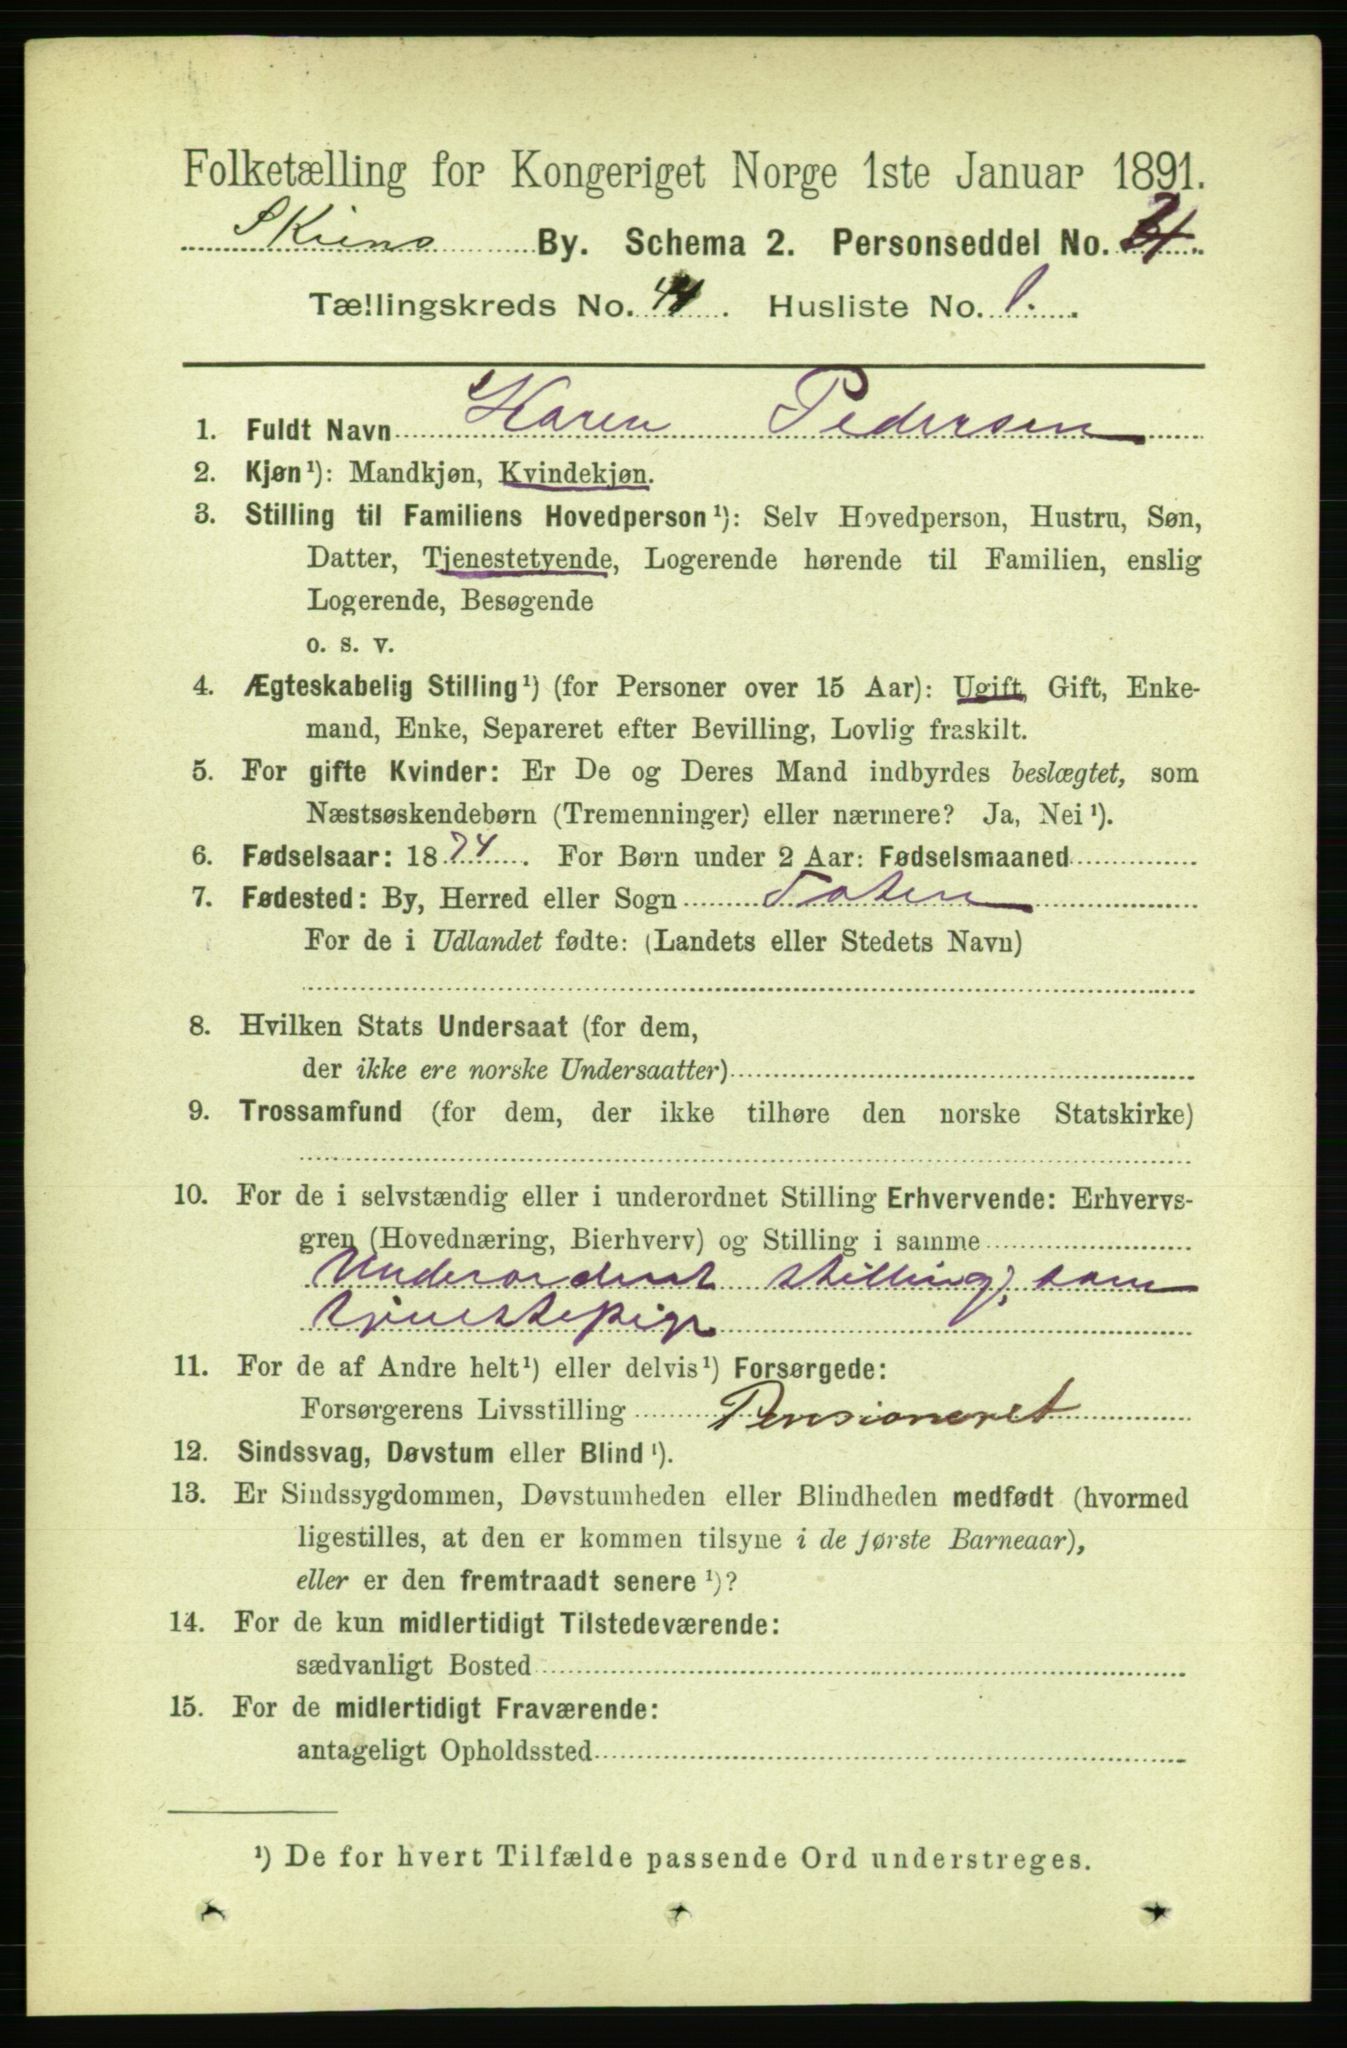 Folketælling for Kongeriget Norge 1ste Januar 1891.
Skiens By. Schema 2. Personseddel No.
Tællingskreds No. Husliste No. 1.
1. Fuldt Navn Karen Pedersen
2. Kjøn¹): Mandkjøn, Kvindekjøn.
3. Stilling til Familiens Hovedperson¹): Selv Hovedperson, Hustru, Søn,
Datter, Tjenestetyende, Logerende hørende til Familien, enslig
Logerende, Besøgende
o. s. v.
4. Ægteskabelig Stilling¹) (for Personer over 15 Aar): Ugift, Gift, Enke-
mand, Enke, Separeret efter Bevilling, Lovlig fraskilt.
5. For gifte Kvinder: Er De og Deres Mand indbyrdes beslægtet, som
Næstsøskendebørn (Tremenninger) eller nærmere? Ja, Nei¹).
6. Fødselsaar: 1874. For Børn under 2 Aar: Fødselsmaaned
7. Fødested: By, Herred eller Sogn Toten
For de i Udlandet fødte: (Landets eller Stedets Navn)
8. Hvilken Stats Undersaat (for dem,
der ikke ere norske Undersaatter)
9. Trossamfund (for dem, der ikke tilhøre den norske Statskirke)
10. For de i selvstændig eller i underordnet Stilling Erhvervende: Erhvervs-
gren (Hovednæring, Bierhverv) og Stilling i samme
Underordnet stilling, som
tjenestepige
11. For de af Andre helt¹) eller delvis¹) Forsørgede:
Forsørgerens Livsstilling Pensioneret
12. Sindssvag, Døvstum eller Blind¹).
13. Er Sindssygdommen, Døvstumheden eller Blindheden medfødt (hvormed
ligestilles, at den er kommen tilsyne i de første Barneaar),
eller er den fremtraadt senere¹)?
14. For de kun midlertidigt Tilstedeværende:
sædvanligt Bosted
15. For de midlertidigt Fraværende:
antageligt Opholdssted
¹) De for hvert Tilfælde passende Ord understreges.